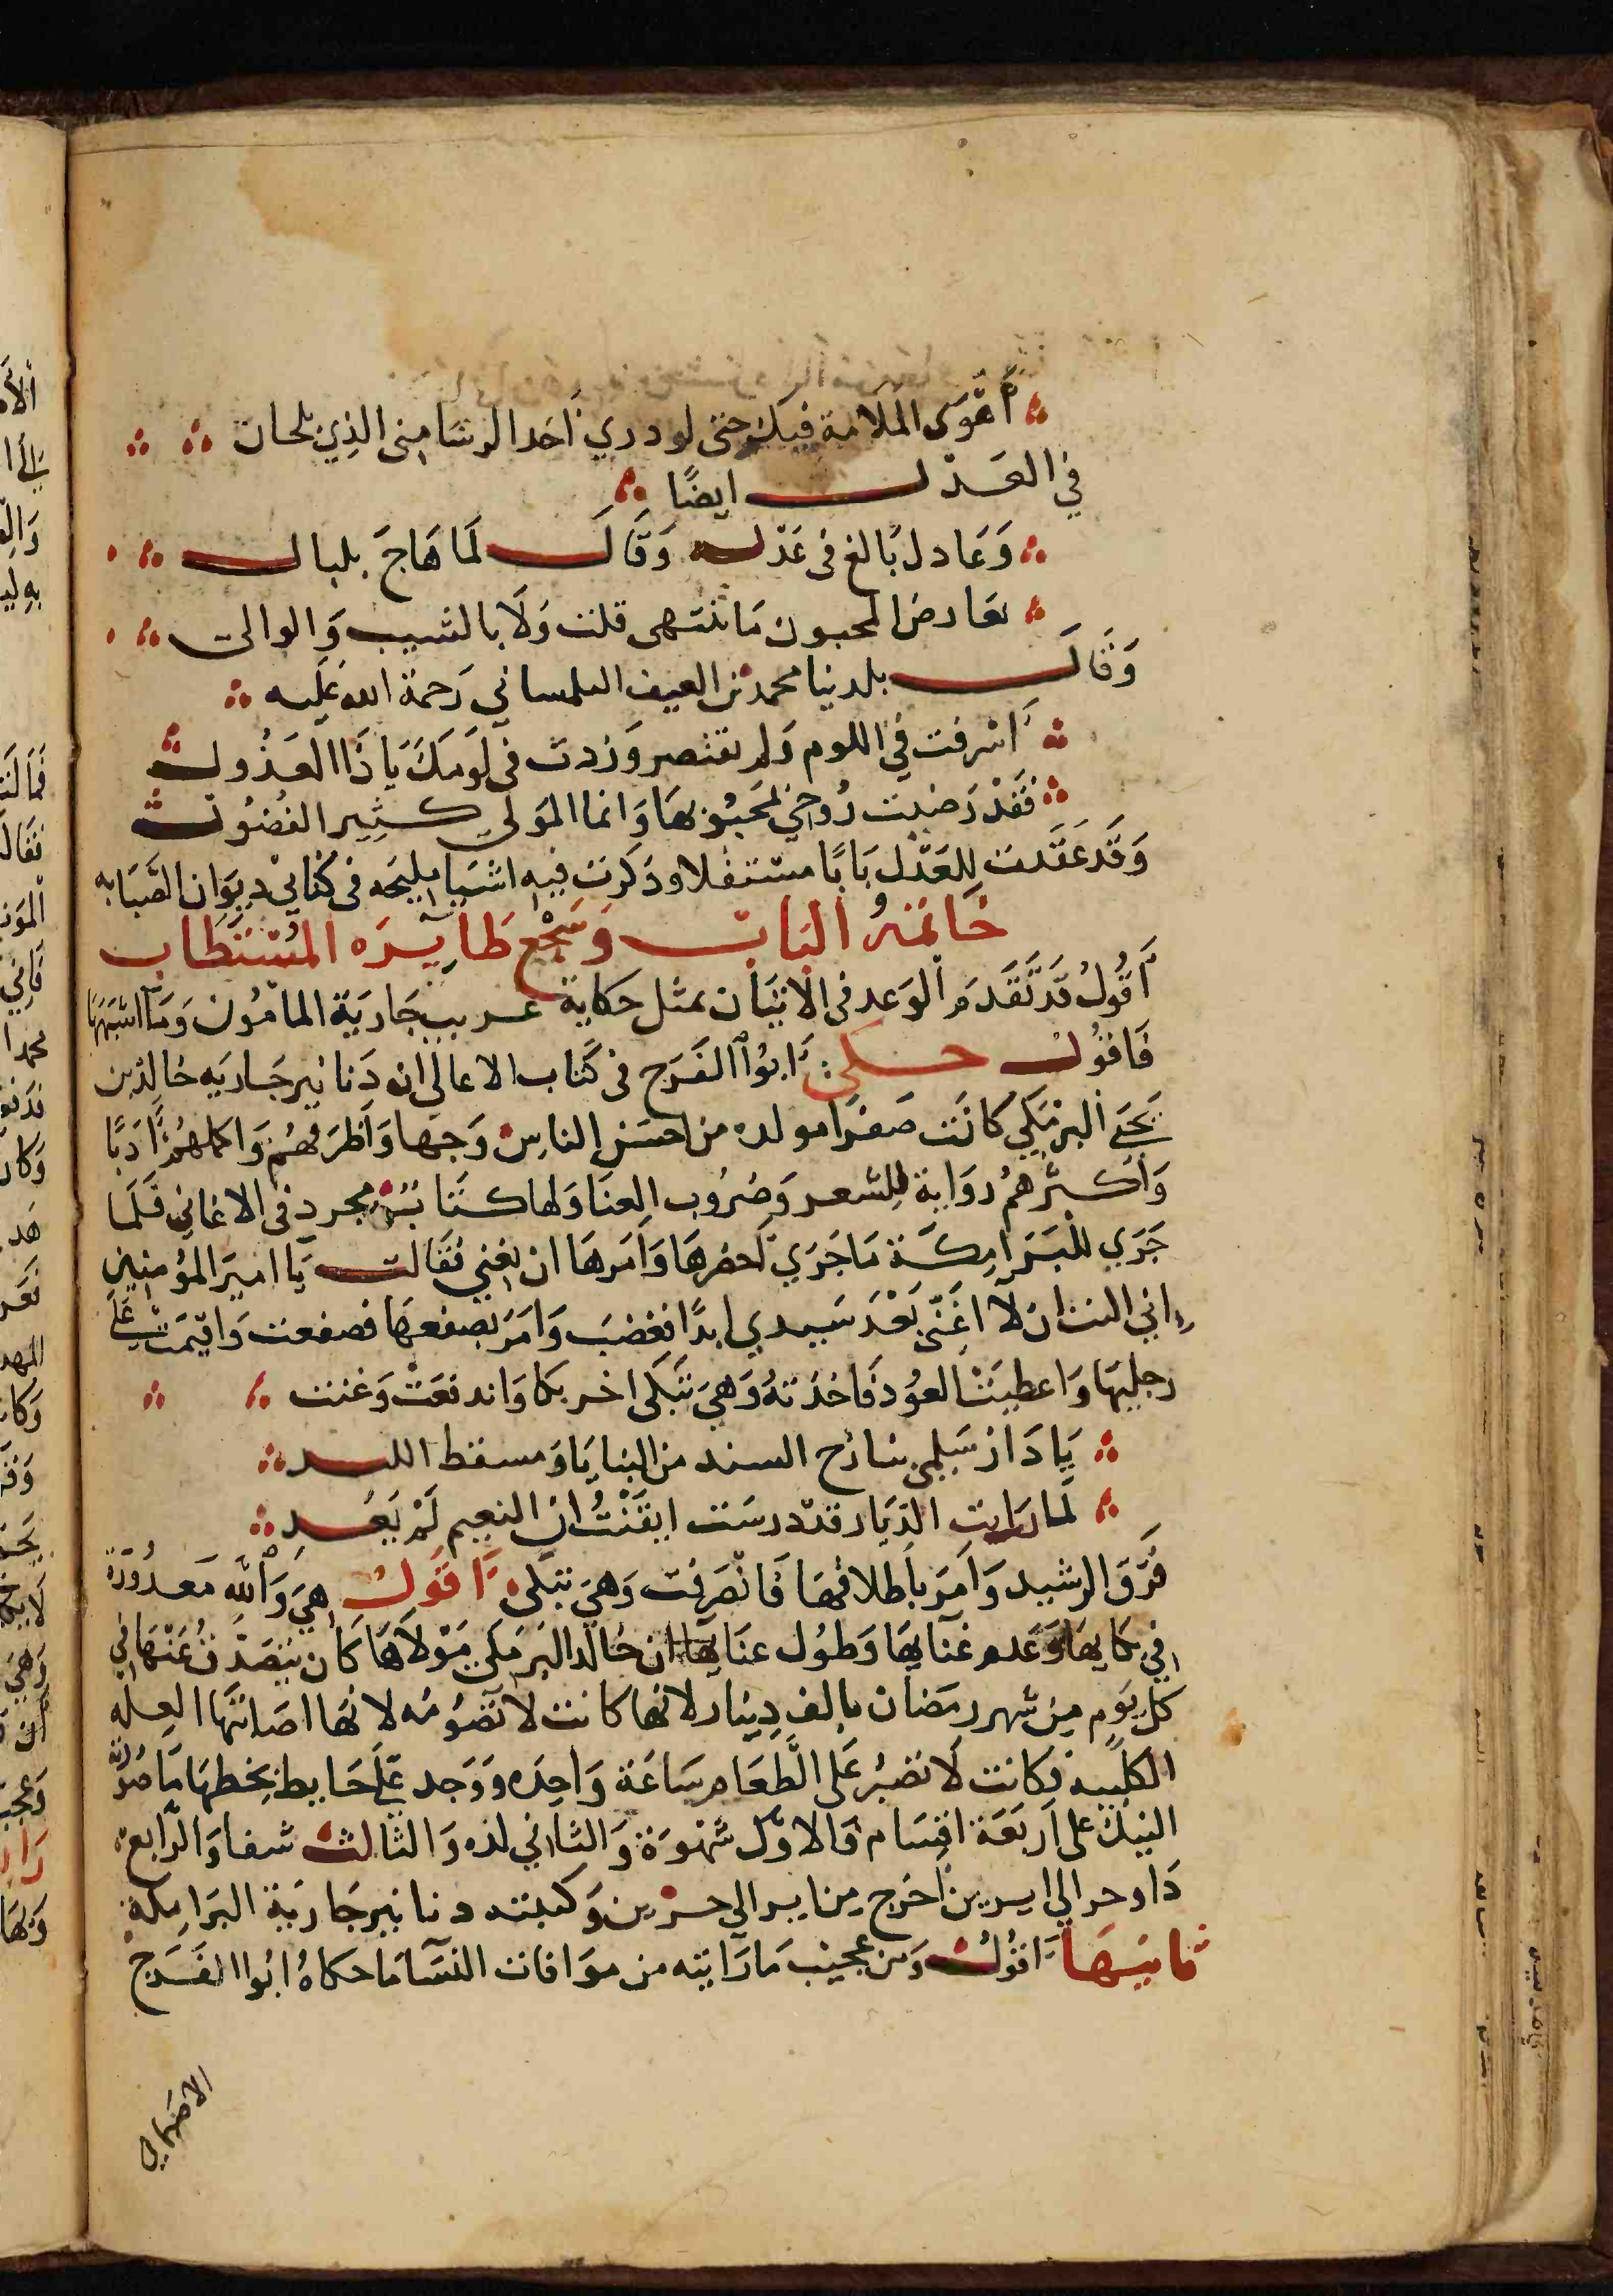 أهوى الملامة فيك حتى لو درى أخد الرشا مني الذي يلحان
في العذل ايضًا
وَعَادل بَالغ في عَذله وَقَال لَما هَاجَ بلبال
بعارض المحبون مَا تنتهى قلت وَلَا بالشيب وَالوالى
وَقَال بلدينا محمد بن العفيف التلمساني رَحمة الله عَليه
أسرفت في اللوم وَلم تقتصر وَزدت في لَومكَ يَا ذَا العَذُول
فقَدْ رَضيت رُوحي لمحَبُوبهَا وَانما المَولى كثير الفُضُول
وَقَد عَقَدت للعَذل بَابًا مستقلا وذكرت فيه اشيا مليحه في كتابي ديوَان الصَّبَابه
خَاتمَة البَاب وَسَجْع طَايره المُسْتَطَاب
أقُولُ قَد تَقَدم الوَعد في الاتيَان بمثل حكاية عريب جَاريَة المامُون وَمَا اشبَهَهَا
فَاقوُل حكى ابُو الفَرَج في كتَاب الاغاني ان دَنانير جَاريَه خالد بن
يَحيَى البَرمَكي كانَت صَفرَا مولده من احسَن الناس وَجهَا وَاظرَفهُم وَاكملهُم أدَبًا
وَاكثرهمُ روَاية للِشعر وَضرُوب الغنَا وَلها كتَابٌ مجرد في الاغاني فَلَما
جَرَى للبَرَامكة مَا جَرَي احضرهَا وَأمَرهَا ان تغني فقَالت يَا اميرَ المؤمنين
اني اليت ان لا اغَني بَعْدَ سَيدي ابدًا فغضبَ وَامَرَ بصفعهَا فصفعت وَاقيمَت عَلَى
رجليهَا وَاعطيَت العُود فَاخذَتهُ وَهيَ تبكى اخر بكا وَاندفعَت وَغنت
يَا دَارَ سَلمى بنازح السند من الثنايَا وَمسقط اللبد
لَما رَايت الديَار قد درسَت ايقَنْتُ ان النعيم لَمْ يَعُد
فَرَقَّ الرشيد وَأمَرَ بأطلاقهَا فَانصَرفت وَهيَ تبكى أقول هيَ وَالله مَعدُودَة
في بكايهَا وَعَدم غنَآيهَا وَطوُل عنَايهَا ان خالد البرمَكي مَوْلاهَا كَان يَتصَدق عَنْهَا في
كل يَوم من شهر رمَضان بالف دِينَار لانها كانت لا تصُومُه لانهَا اصَابتهَا العله
الكلبيه فكانت لا تصْبرُ عَلى الطَّعَام سَاعَة وَاحِدَه وَوَجد عَلَى حَايط بخطهَا مَا صُورَته
النيك على أربَعَة اقسَام فَالاوّل شَهْوَة وَالثاني لذه وَالثالث شفا وَالرّابع
دَا وحر الي ايرين احوَج من اير الى حرين وَكتبته دنانير جَاريَة البَرَامكة
ثانيهَا اقوُل وَمن عَجيب مَا رَايته من موَافات النسَآ مَا حكاهُ ابُو الفَرَج
الاصبهاني